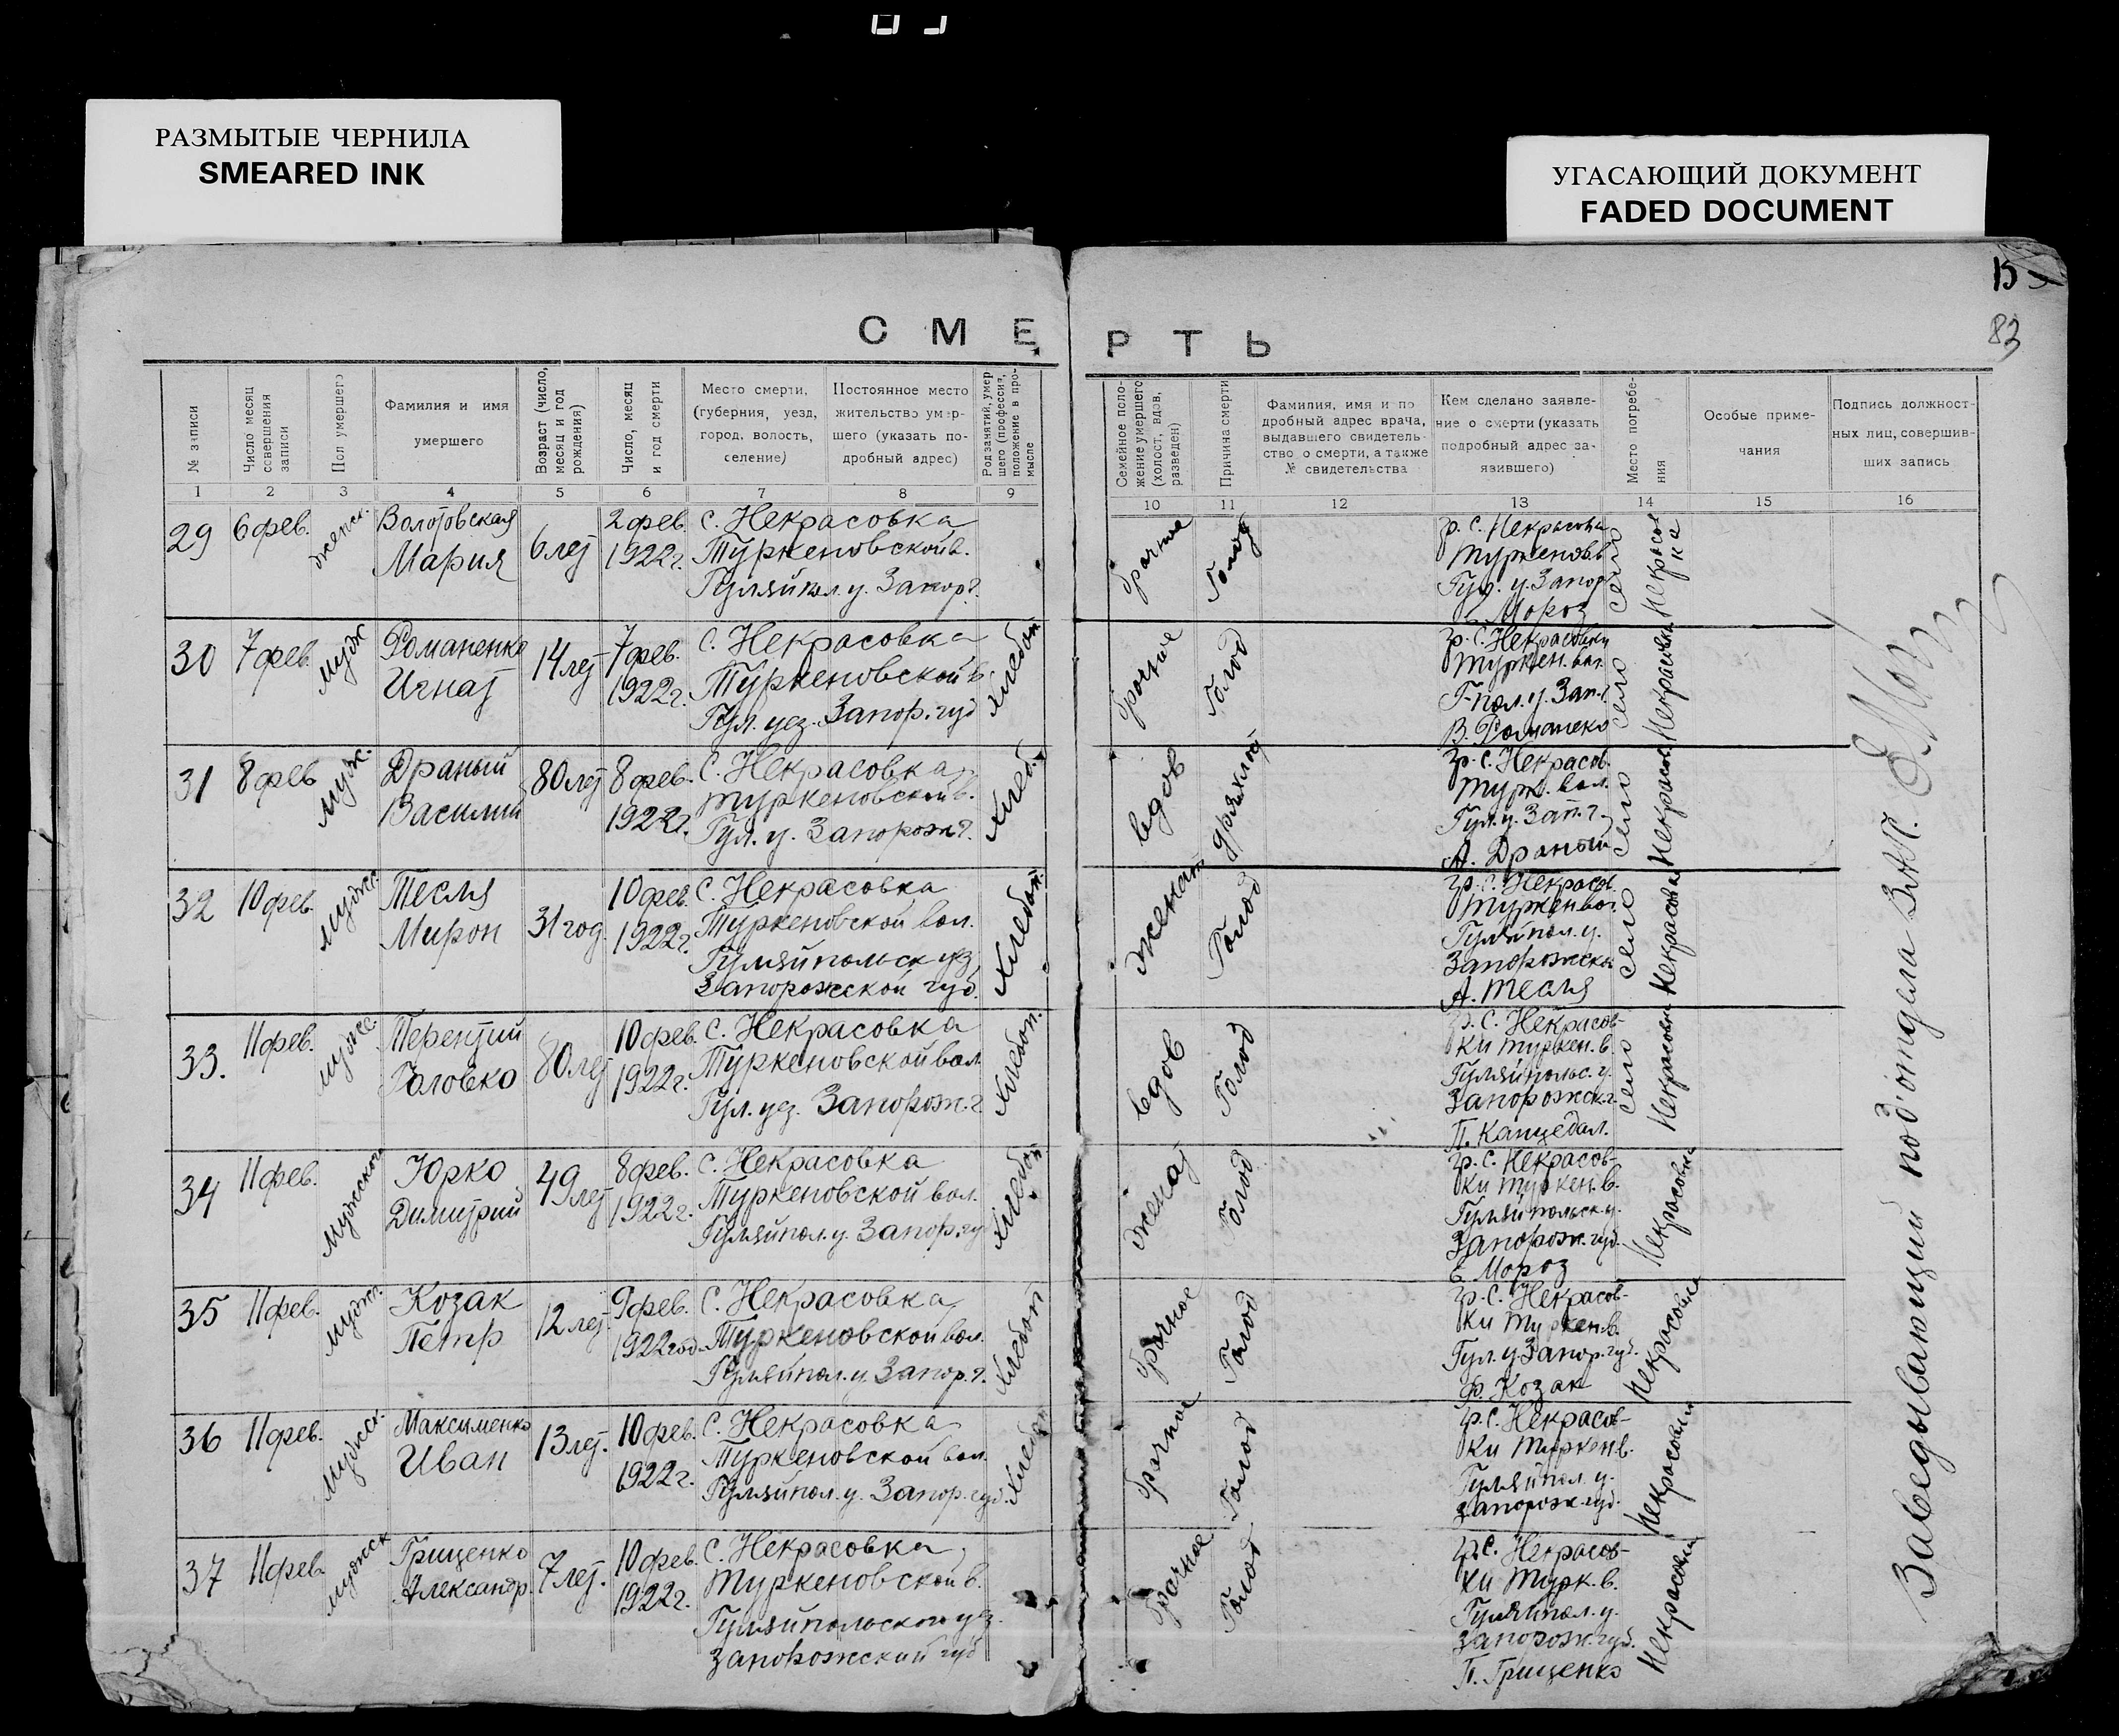 РАЗМЫТЫЕ ЧЕРНИЛА
SMEARED INK
УГАСАЮЩИЙ ДОКУМЕНТ
FADED DOCUMENT
15
83
СМЕРТЬ
№ записи
Число месяц совершения записи
Пол умершего
Фамилия и имя умершего
Возраст (число, месяц и год рождения)
Число, месяц и год смерти
Место смерти, (губерния, уезд, город, волость, селение)
Постоянное место жительство умершего (указать подробный адрес)
Род занятий, умершего (профессия, положение в промысле
Семейное положение умершего (холост, вдов, разведен)
Причина смерти
Фамилия, имя и подробный адрес врача, выдавшего свидетельство о смерти, а также № свидетельства
Кем сделано заявление о смерти (указать подробный адрес заявившего)
Место погребения
Особые примечания
Подпись должностных лиц, совершивших запись
1 2 3 4 5 6 7 8 9 10 11 12 13 14 15 16
29 6 фев. женск. 6 лет 2 фев. с. Некрасовка
Мария 1922 г. Туркеновской в.
Гуляйпол. у. Запор. г.
Голод
гр. с. Некрасовки
Туркенов. в.
Гул. у. Запор.
Мороз
село Некрасовка
30 7 фев. мужс Романенко 14 лет 7 фев. с. Некрасовка хлебоп
Игнат 1922 г. Туркеновской в.
Гул. уез. Запор. губ
Голод
гр. с. Некрасовки
Туркен. вол.
Г-пол. у. Зап. г.
В. Романеко
село Некрасовка
31 8 фев мужс. Драный 80 лет 8 фев. с. Некрасовка хлеб.
Василий 1922 г. Туркеновской в.
Гул. у. Запорож г.
вдов дряхлост
гр. с. Некрасов.
Турк. вол.
Гул. у. Зап. г.
А. Драный
село Некрасов
32 10 фев. мужс. Тесля 31 год. 10 фев. с. Некрасовка хлебоп.
Мирон 1922 г. Туркеновской вол.
Гуляйпольск уз
Запорожской губ.
женат Голод
гр. с. Некрасов.
Туркен вол.
Гуляйпол. у.
Запорожской
А. Тесля
село Некрасовка
33. 11 фев. мужс. Терентий 80 лет 10 фев. с. Некрасовка хлебоп.
Головко 1922 г. Туркеновской вол.
Гул. уез. Запорож. г.
вдов Голод
гр. с. Некрасов-
ки Туркен. в.
Гуляйпольс. у.
Запорожск. г.
П. Канцедал.
село Некрасовка
34 11 фев. Мужского Юрко 49 лет 8 фев. с. Некрасовка хлебоп
Димитрий 1922 г. Туркеновской вол.
Гуляйпол. у. Запор. гу
женат Голод
гр. с. Некрасов-
ки Туркен. в.
Гуляйпольск. у.
Запорож. губ.
Мороз
Некрасовка
35 11 фев. мужс. Козак 12 лет 9 фев. с. Некрасовка хлебоп
Петр 1922 год. Туркеновской вол.
Гуляйпол. у. Запор. г.
Голод
гр. с. Некрасов-
ки Туркен в.
Гул. у Запор. губ.
Ф. Козак
Некрасовка
36 11 фев. мужск. Максименко 13 лет. 10 фев. с. Некрасовка хлебоп
Иван 1922 г. Туркеновской вол.
Гуляйпол. у. Запор. губ.
Голод
гр. с. Некрасов-
ки Туркен в.
Гуляйпол. у.
Запорож. губ.
Некрасовки
37 11 фев мужск Грищенко 7 лет. 10 фев. с. Некрасовка,
Александр 1922 г. Туркеновской в.
Гуляйпольского уз.
Запорожский губ
Голод
гр. с. Некрасов-
ки Турк. в.
Гуляйпол. у.
Запорож. губ.
П. Грищенко
Некрасовки
Заведывающий под'отдела